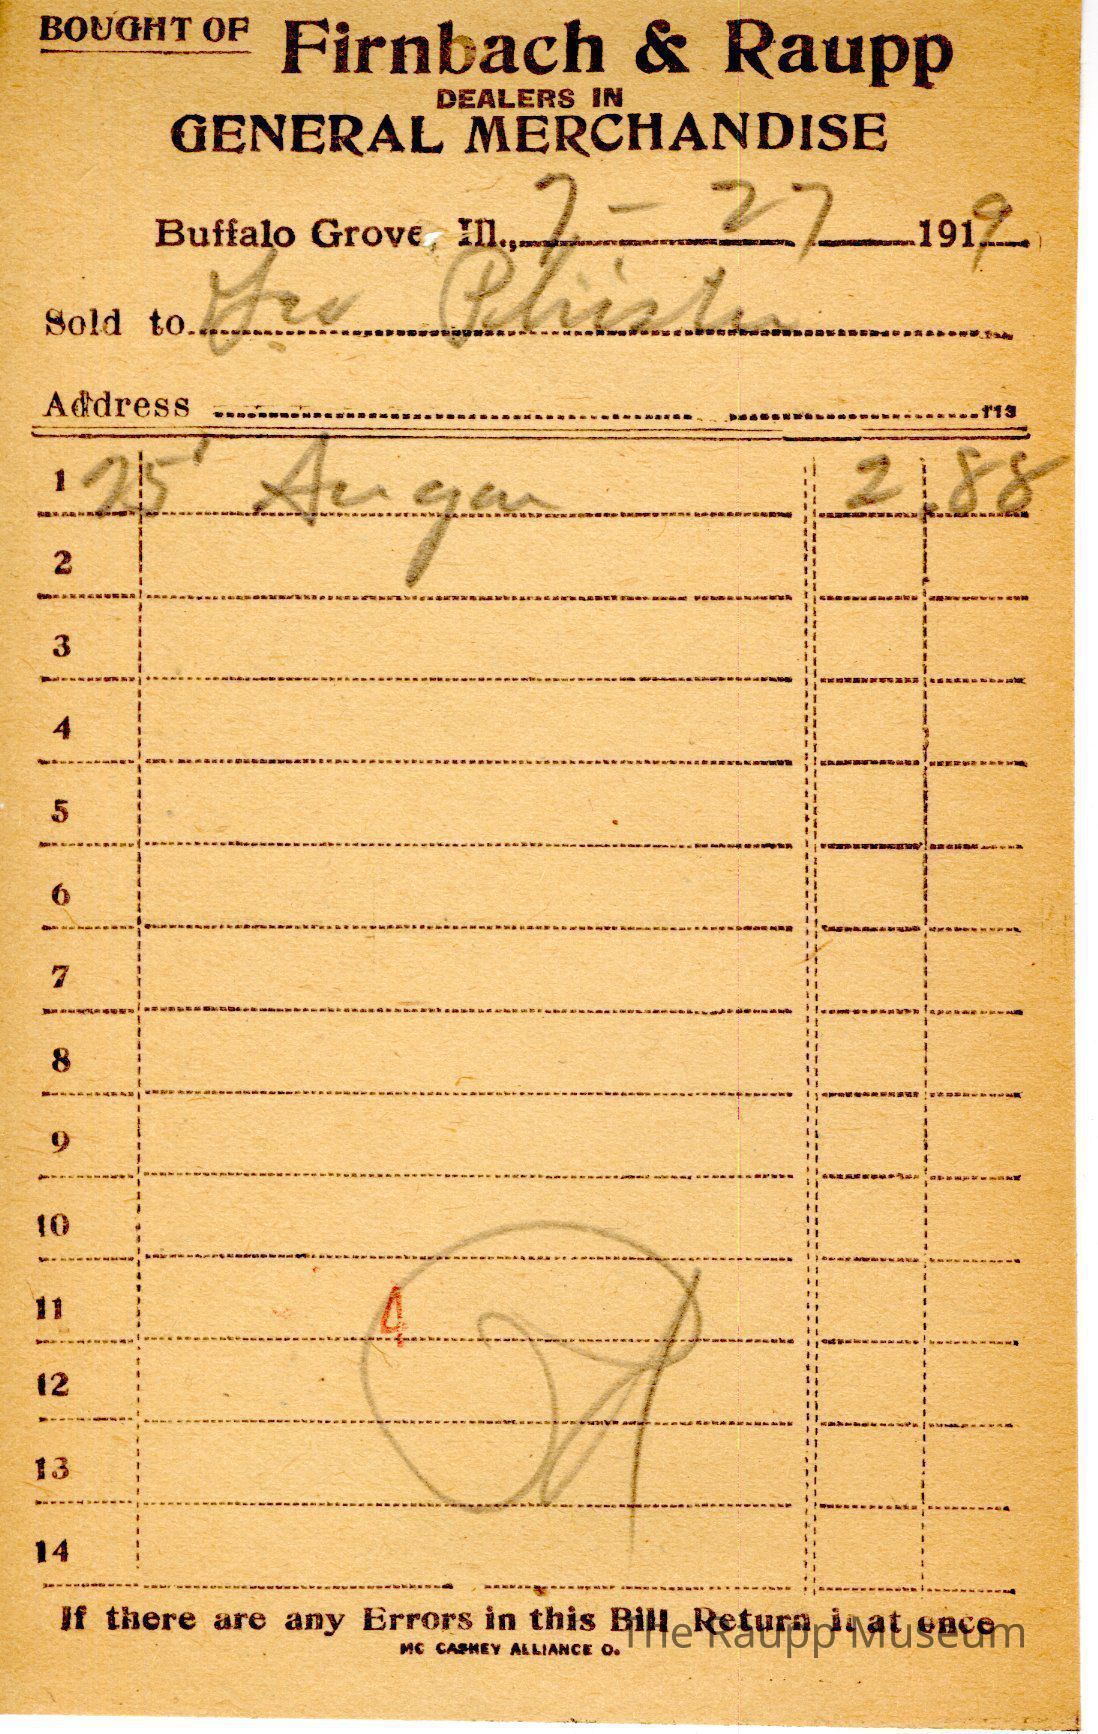 BOUGHT OF Firnbach & Raupp
DEALERS IN
GENERAL MERCHANDISE
Buffalo Grove, Ill., 7 - 27 1919
Sold to Geo
Address 113
1 25 Sugar 2.88
2
3
4
5
6
7
8
9
10
11 4
12
13
14
If there are any Errors in this Bill Return it at once
MC CASKEY ALLIANCE O.
The Raupp Museum